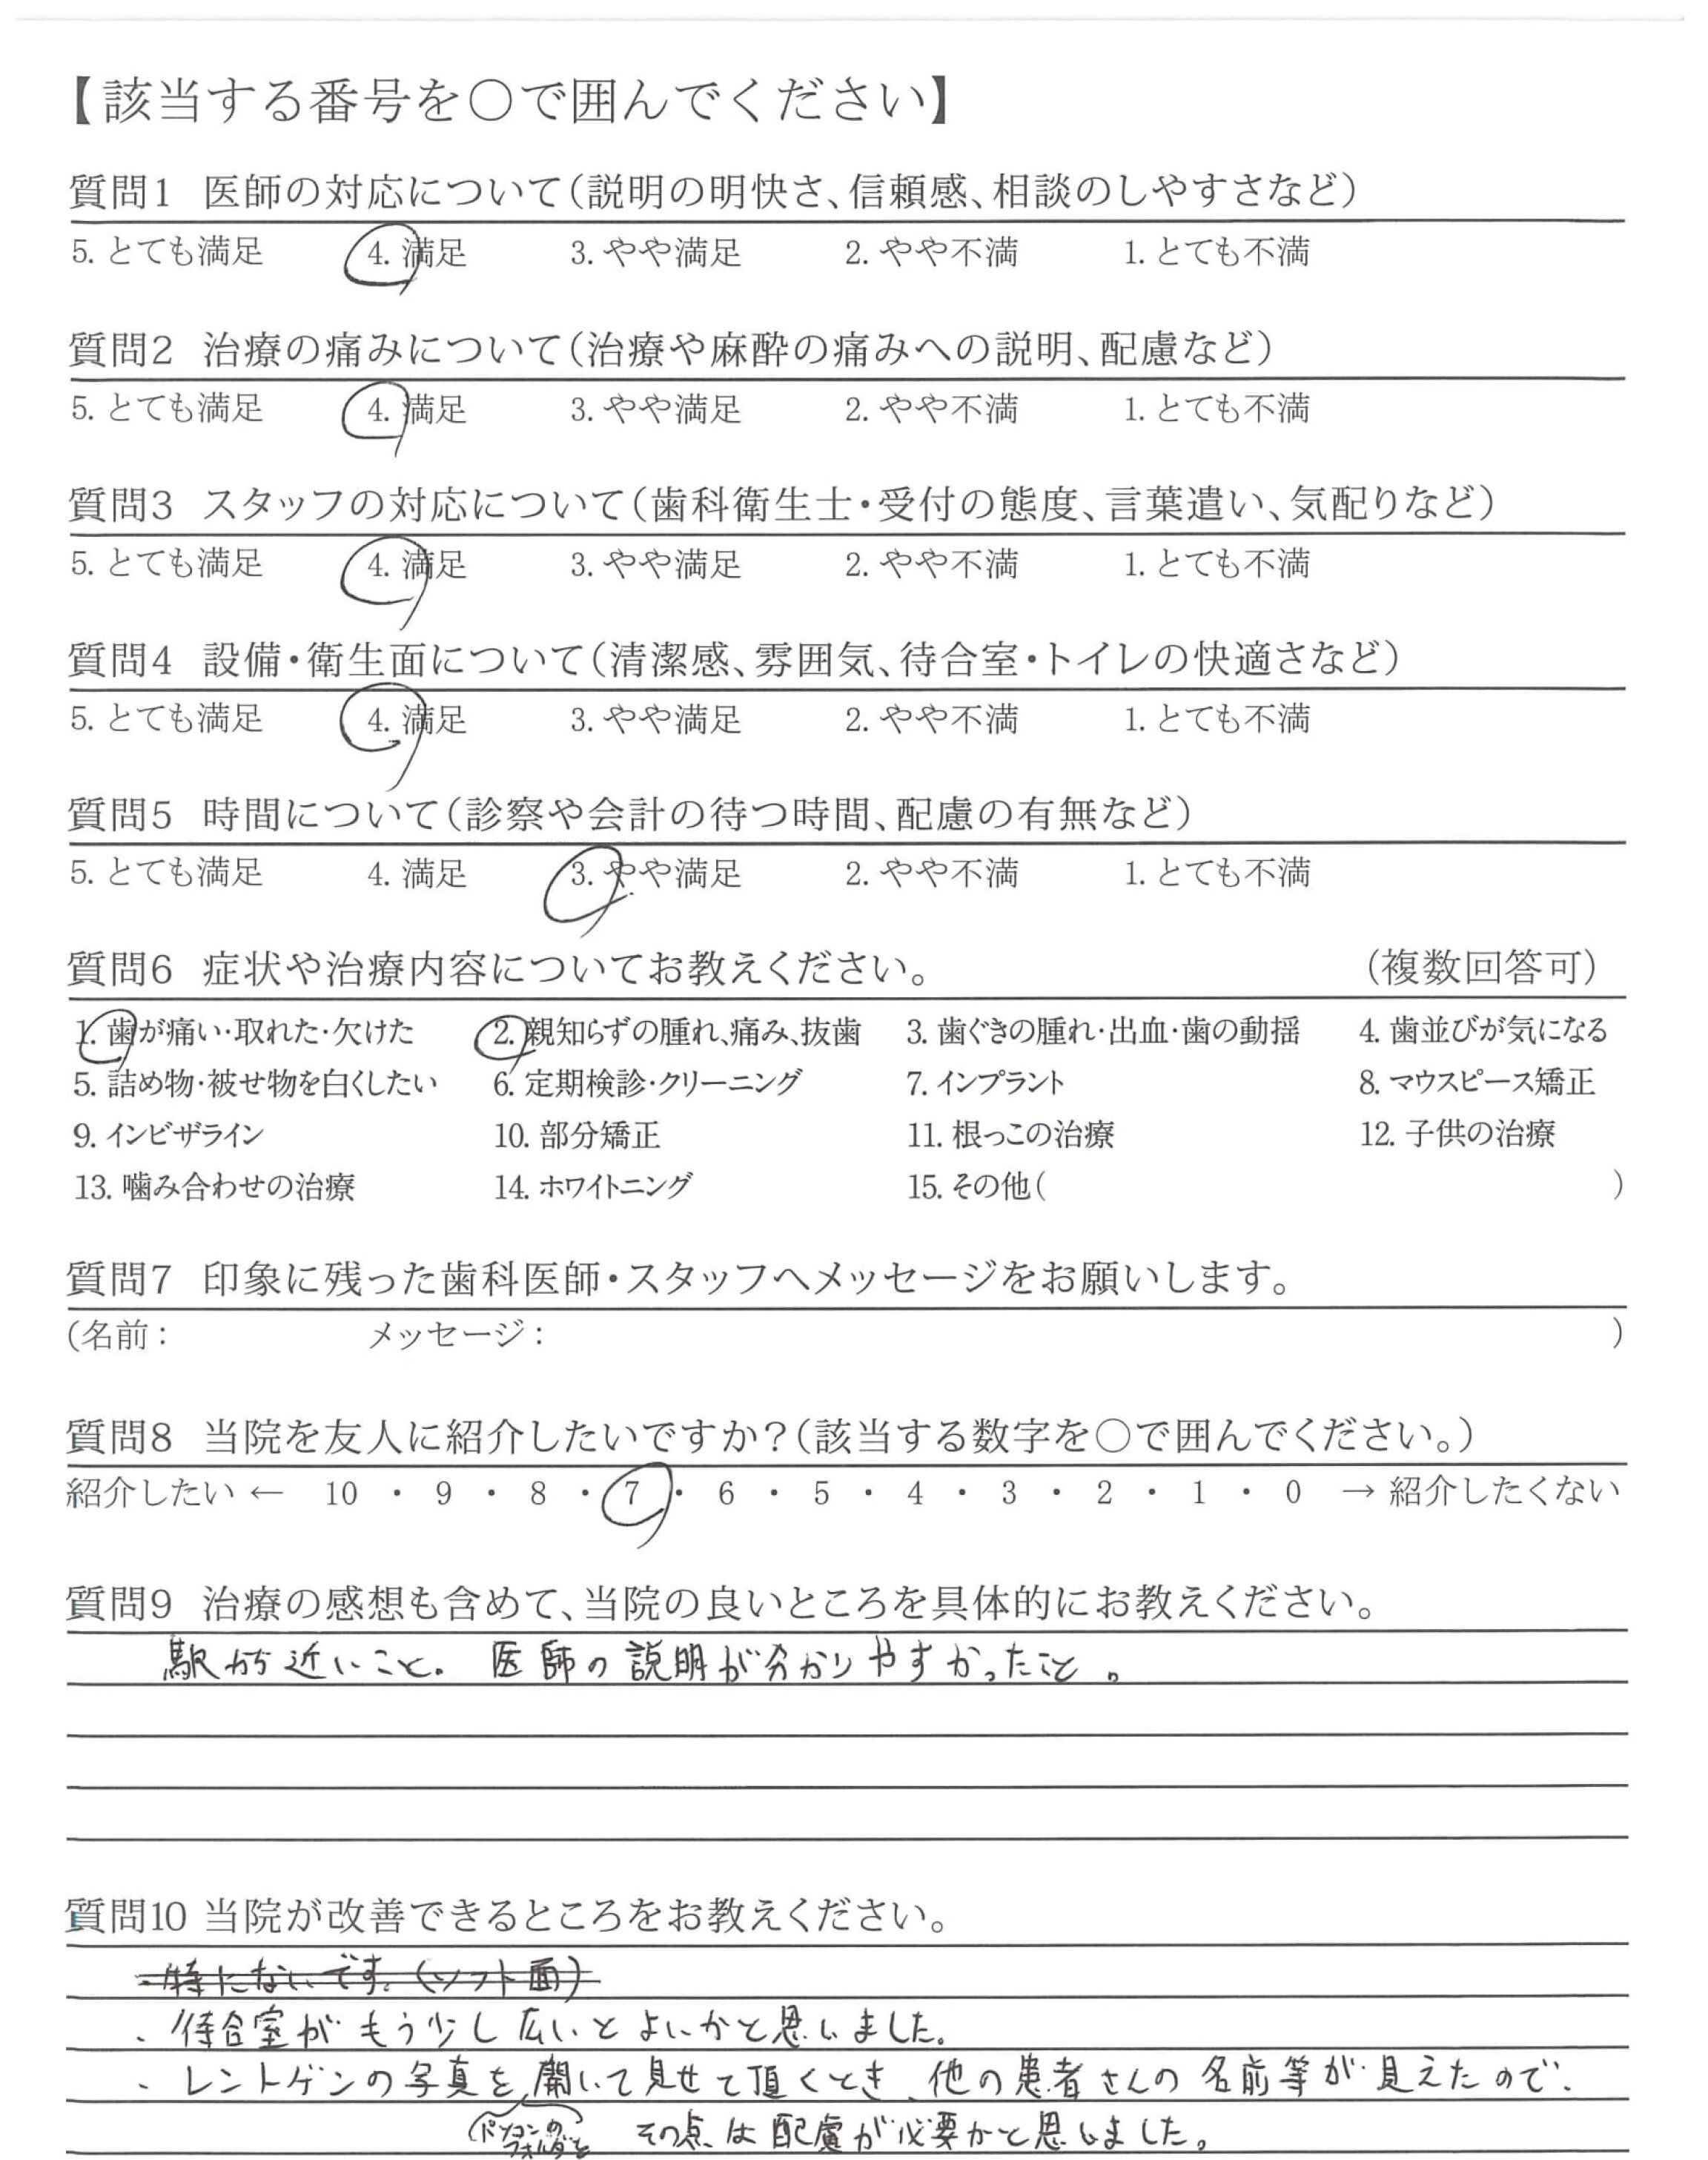 【該当する番号を○で囲んでください】
質問1 医師の対応について(説明の明快さ、信頼感、相談のしやすさなど)
5. とても満足 4. 満足 3. やや満足 2. やや不満 1. とても不満
質問2 治療の痛みについて(治療や麻酔の痛みへの説明、配慮など)
5. とても満足 4. 満足 3. やや満足 2. やや不満 1. とても不満
質問3 スタッフの対応について(歯科衛生士・受付の態度、言葉遣い、気配りなど)
5. とても満足 4. 満足 3. やや満足 2. やや不満 1. とても不満
質問4 設備・衛生面について(清潔感、雰囲気、待合室・トイレの快適さなど)
5. とても満足 4. 満足 3. やや満足 2. やや不満 1. とても不満
質問5 時間について(診察や会計の待つ時間、配慮の有無など)
5. とても満足 4. 満足 3. やや満足 2. やや不満 1. とても不満
質問6 症状や治療内容についてお教えください。 (複数回答可)
1. 歯が痛い・取れた・欠けた 2. 親知らずの腫れ、痛み、抜歯 3. 歯ぐきの腫れ・出血・歯の動揺 4. 歯並びが気になる
5. 詰め物・被せ物を白くしたい 6. 定期検診・クリーニング 7. インプラント 8. マウスピース矯正
9. インビザライン 10. 部分矯正 11. 根っこの治療 12. 子供の治療
13. 噛み合わせの治療 14. ホワイトニング 15. その他( )
質問7 印象に残った歯科医師・スタッフへメッセージをお願いします。
(名前: メッセージ: )
質問8 当院を友人に紹介したいですか?(該当する数字を○で囲んでください。)
紹介したい ← 10 ・ 9 ・ 8 ・ 7 ・ 6 ・ 5 ・ 4 ・ 3 ・ 2 ・ 1 ・ 0 → 紹介したくない
質問9 治療の感想も含めて、当院の良いところを具体的にお教えください。
駅から近いこと。医師の説明が分かりやすかったこと。
質問10 当院が改善できるところをお教えください。
・特にないです。(ソフト面)
・待合室がもう少し広いとよいかと思いました。
・レントゲンの写真を開いて見せて頂くとき、他の患者さんの名前等が見えたので、
(パソコンの
フォルダを
その点は配慮が必要かと思いました。